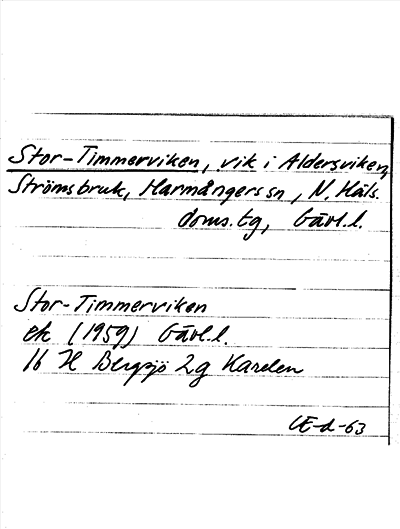 Stor-Timmerviken, vik i Aldersviken,
Strömsbruk, Harmångers sn, N. Häls.
doms. tg, Gävl.l.
Stor-Timmerviken
ek (1959) Gävl.l.
16 H Bergsjö 2g Karelen